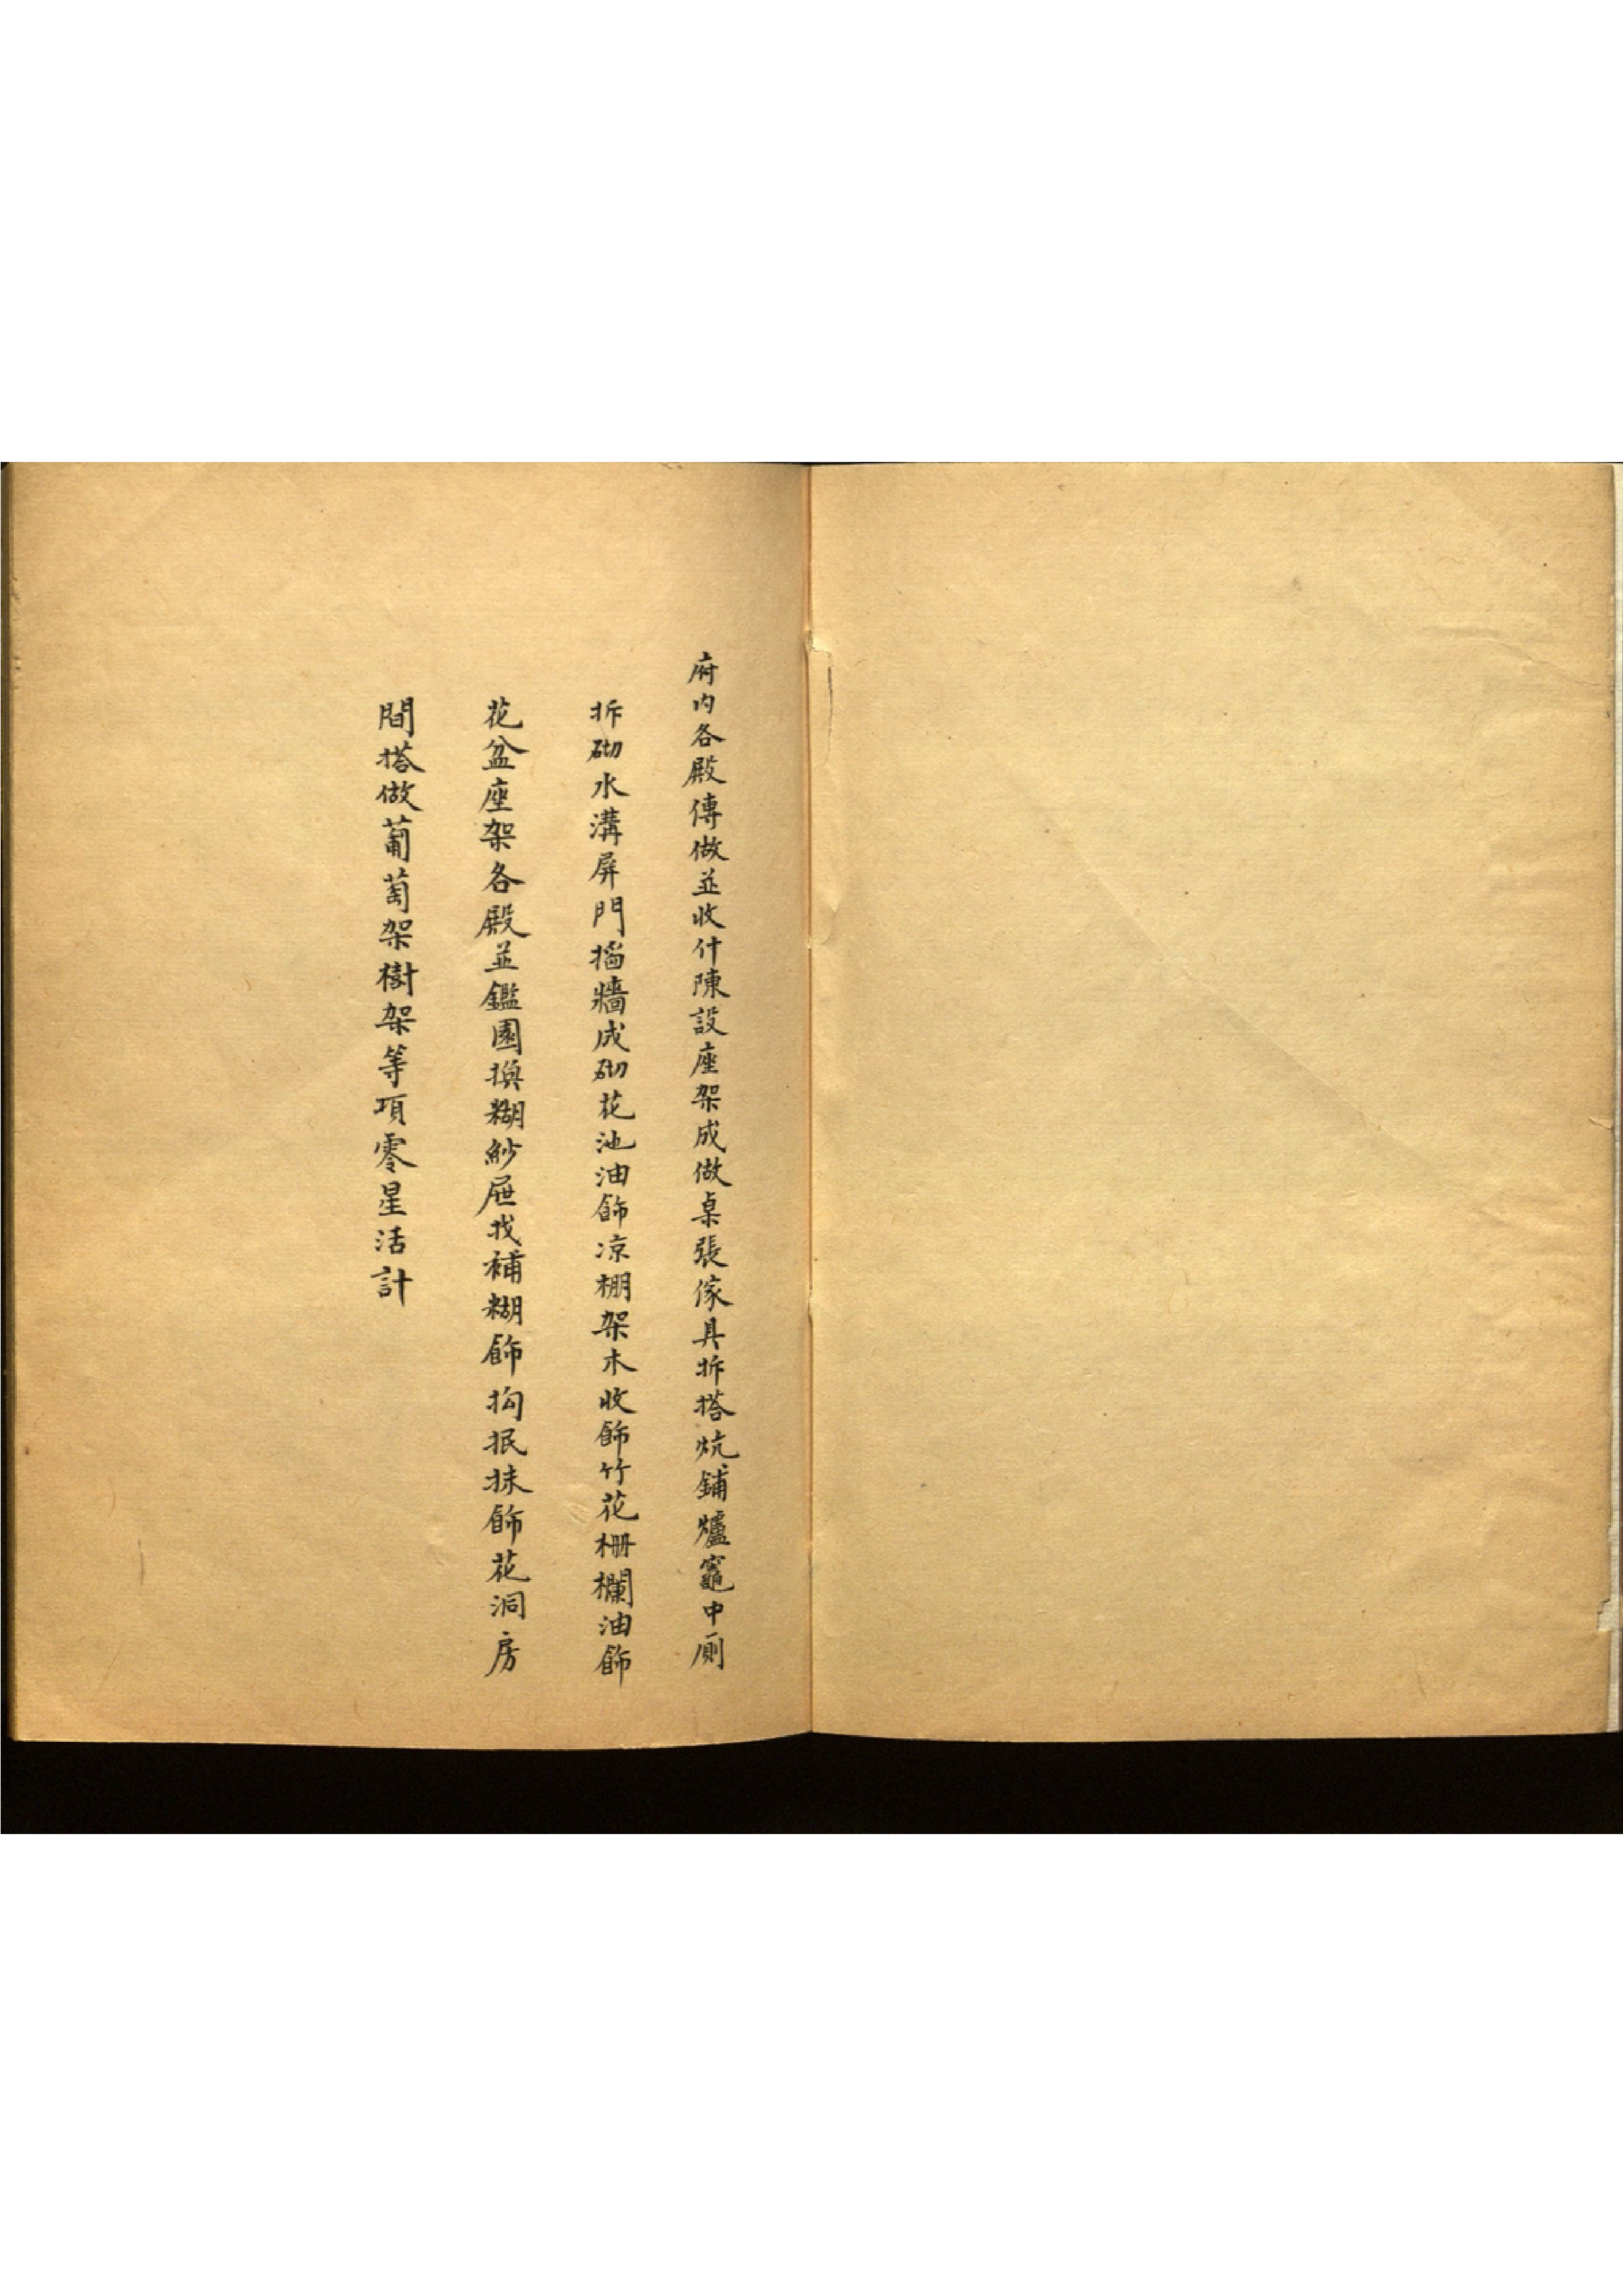 府內各殿傳做並收什陳設座架成做桌張傢具拆搭炕鋪爐竈中厠
拆砌水溝屏門牆成砌花池油飾凉棚架木收飾竹花栅欄油飾
花盆座架各殿並鑑園換糊紗屜找補糊飾抅抿抹飾花洞房
間搭做葡萄架樹架等項零星活計